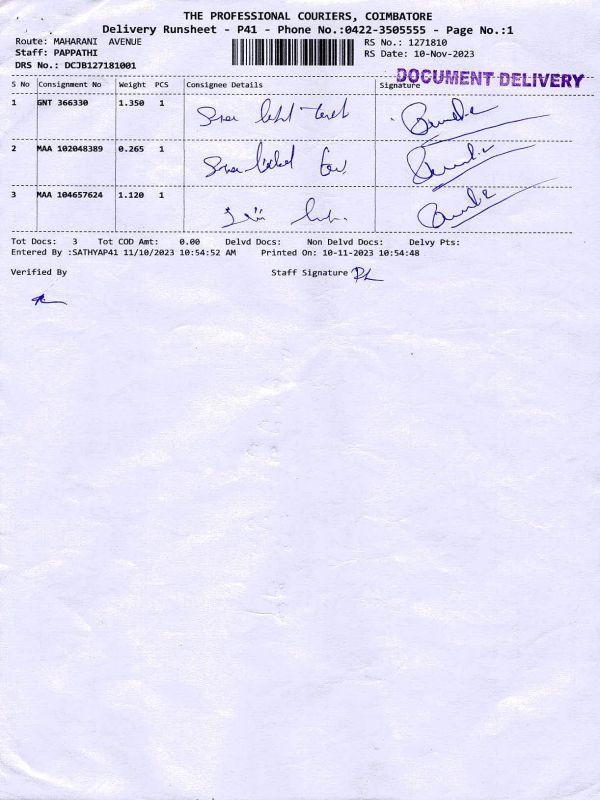 THE PROFESSIONAL COURIERS, COIMBATORE
Delivery Runsheet - P41 - Phone No.:0422-3505555 - Page No.:1
Route: MAHARANI AVENUE
RS No.: 1271810
Staff: PAPPATHI
RS Date: 10-Nov-2023
DRS No.: DCJB127181001
DOCUMENT DELIVERY
S No Consignment No Weight PCS Consignee Details Signature
1 GNT 366330 1.350 1
2 MAA 102048389 0.265 1
3 MAA 104657624 1.120 1
Tot Docs: 3 Tot COD Amt: 0.00 Delvd Docs: Non Delvd Docs: Delvy Pts:
Entered By :SATHYAP41 11/10/2023 10:54:52 AM Printed On: 10-11-2023 10:54:48
Verified By Staff Signature